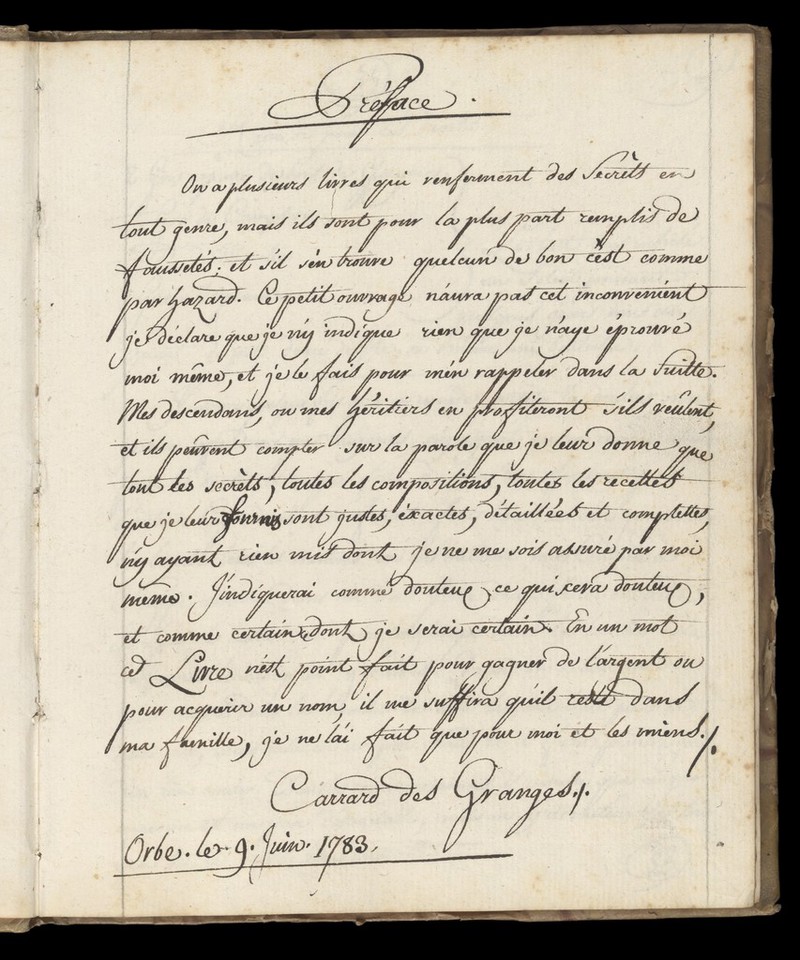 Préface.
On a plusieurs livres qui renferment des Secrêts en
tout genre, mais ils sont pour la plus part remplis de
faussetés; et s'il s'en trouve quelcun de bon c'est comme
par hazard. Ce petit ouvrage n'aura pas cet inconvenient
je déclare que je n'y indique rien que je n'aye éprouvé
moi même, et je le fais pour m'en rappeler dans la Suitte.
Mes descendans, ou mes héritiers en proffiteront s'ils veûlent,
et ils peûvent compter sur la parole que je leur donne que
tout les secrèts, toutes les compositions, toutes les recettes
que je leur fournis sont justes, éxactes, détaillées et complettes,
n'y ayant rien mis dont je ne me sois assuré par moi
meme. J'indiquerai comme douteux ce qui sera douteux,
et comme certain, dont je serai certain. En un mot
cet Livre n'est point fait pour gagner de l'argent ou
pour acquerir un nom, il me suffira qu'il reste dans
ma famille, je ne l'ai fait que pour moi et les miens./.
Carrard des Granges./.
Orbe. le 9. Juin. 1783.